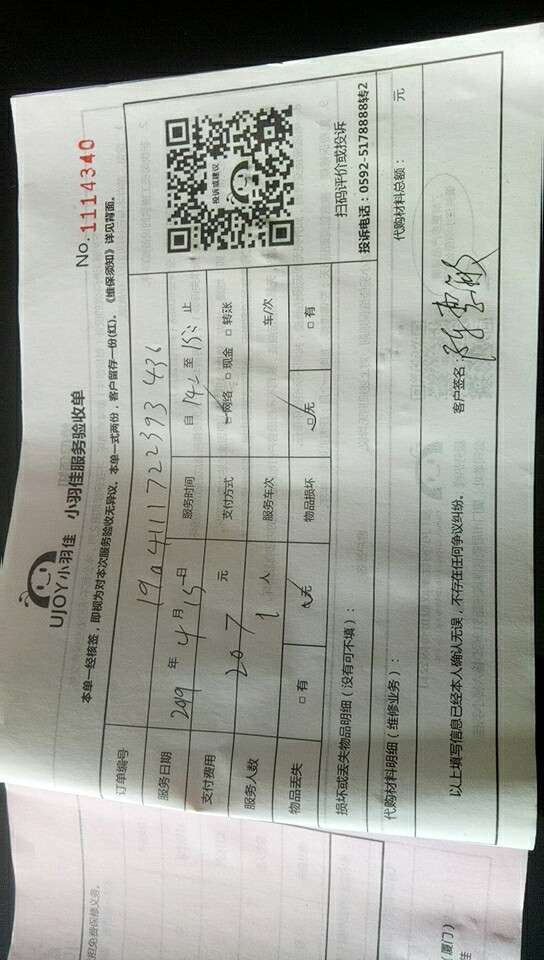 No. 1114340
UJOY小羽佳 小羽佳服务验收单
本单一经核签,即视为对本次服务验收无异议,本单一式两份,客户留存一份(红),《维保须知》详见背面。
订单编号 1904111722393436
服务日期 2019 年 4 月 15 日 服务时间 自 14:00 至 15:00 止
支付费用 207 元 支付方式 ☑网络 □现金 □转账
服务人数 1 人 服务车次 车/次
物品丢失 □有 ☑无 物品损坏 ☑无 □有
投诉或建议
扫码评价或投诉
投诉电话:0592-5178888转2
损坏或丢失物品明细(没有可不填):
代购材料明细(维修业务): 代购材料总额: 元
以上填写信息已经本人确认无误,不存在任何争议纠纷。 客户签名:
担免费保修义务。
(厦门)